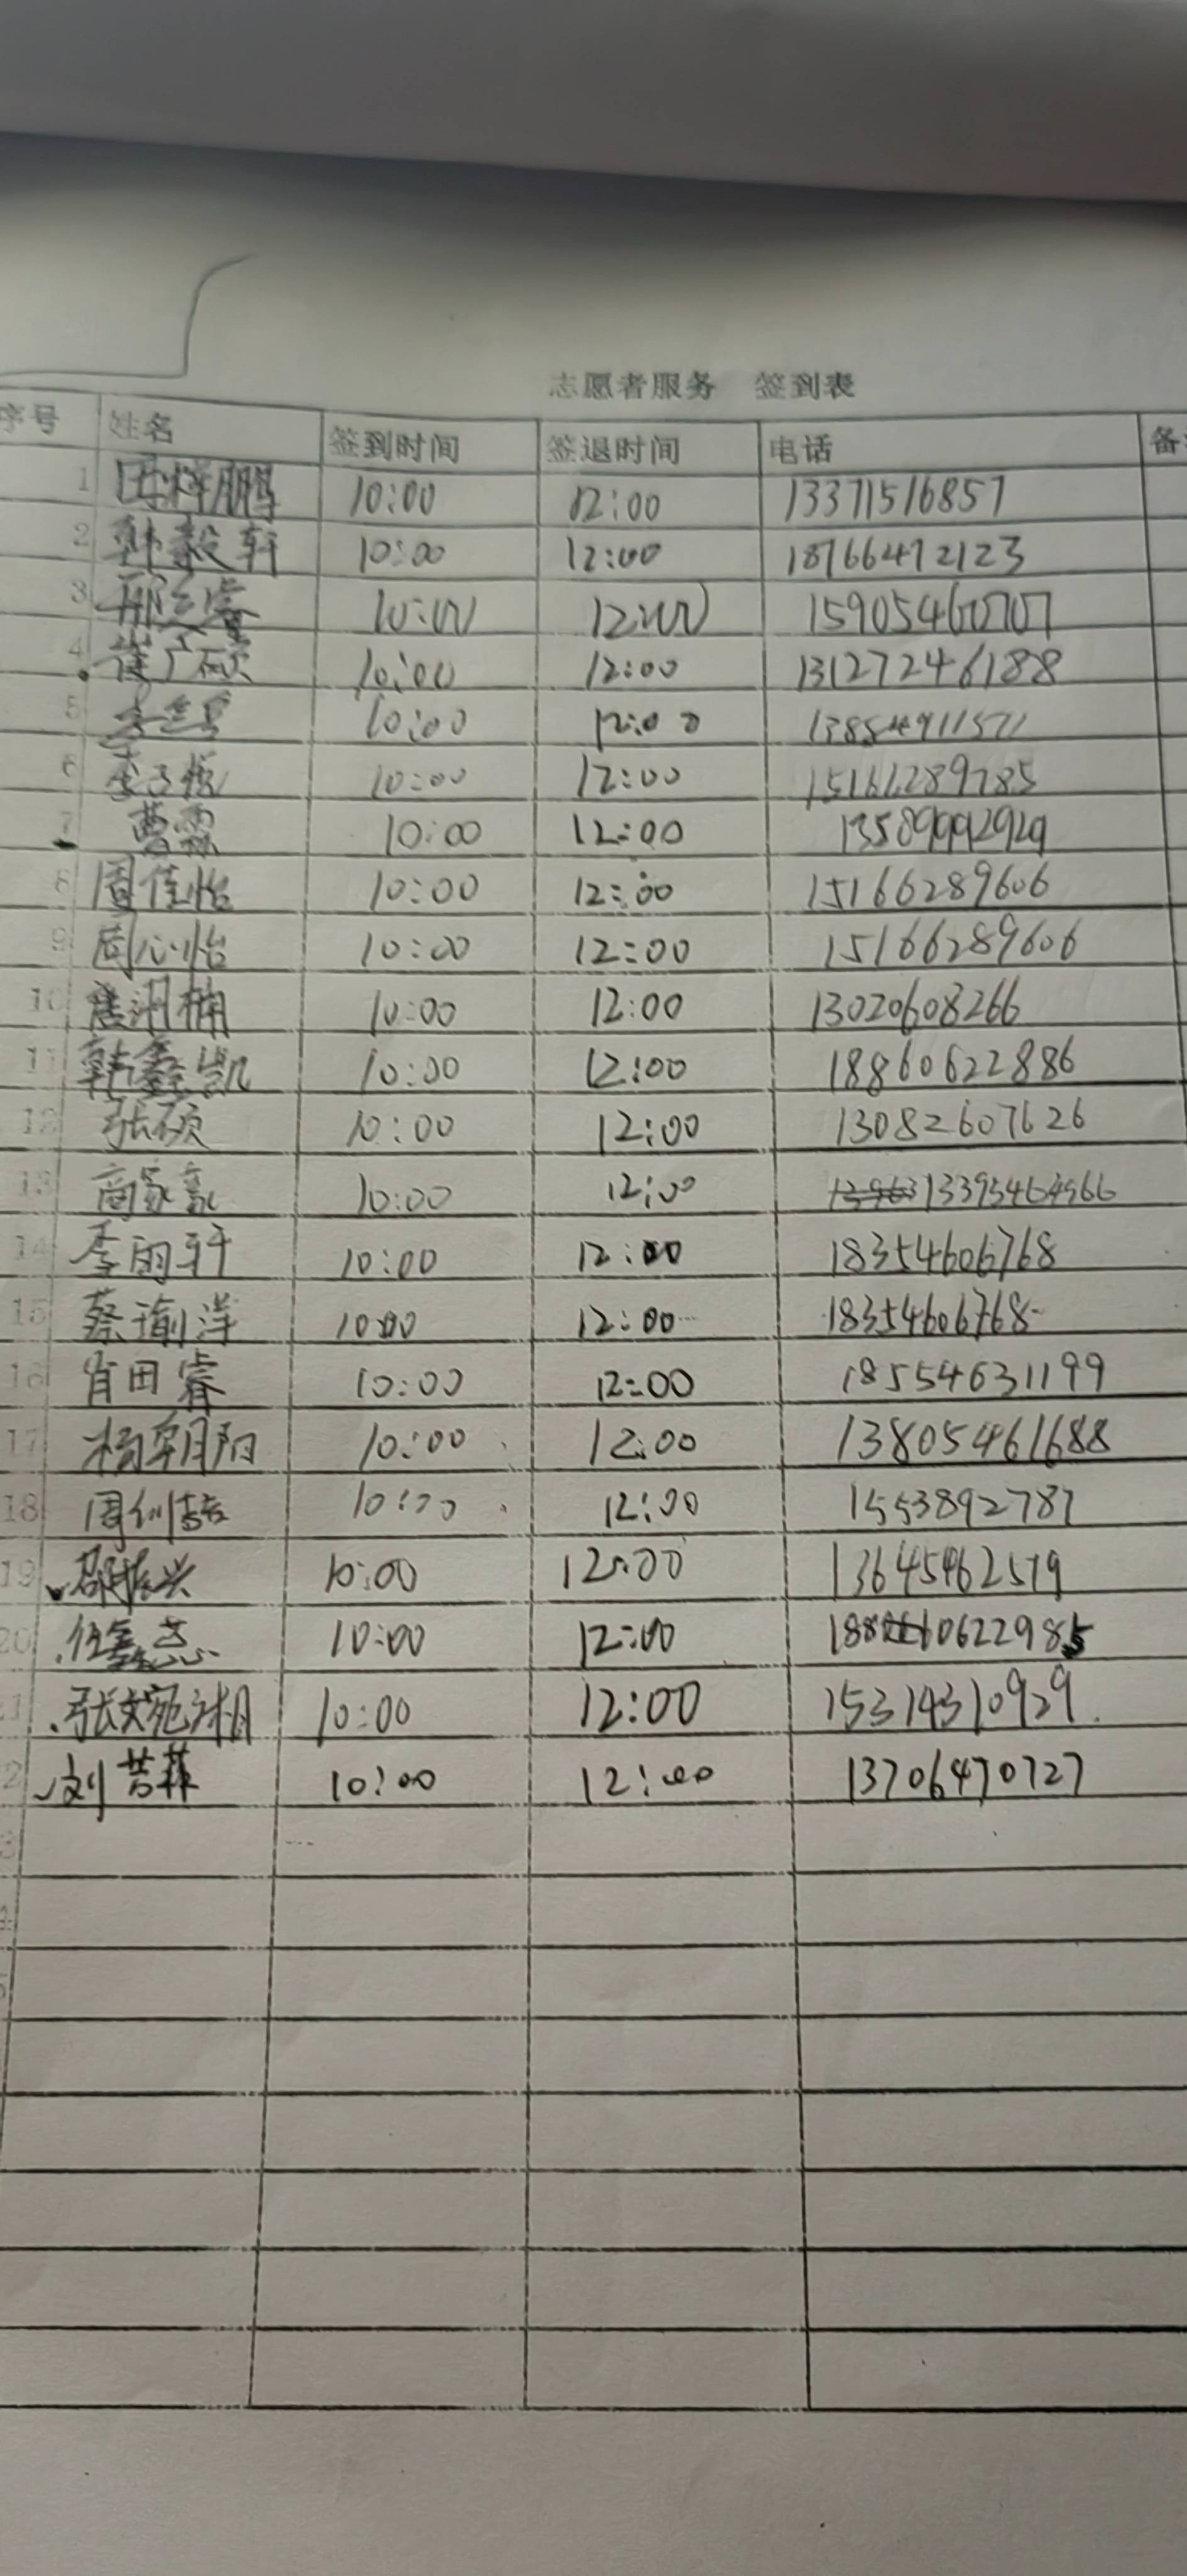 志愿者服务 签到表
序号 姓名 签到时间 签退时间 电话 备
1 田烨鹏 10:00 12:00 13371516857
2 韩毅轩 10:00 12:00 18766472123
3 10:00 12:00 15905460707
4 崔广硕 10:00 12:00 13127246188
5 10:00 12:00
6 李子悦 10:00 12:00 15166289785
7 曹霖 10:00 12:00 13589992929
8 周佳怡 10:00 12:00 15166289606
9 周心怡 10:00 12:00 15166289606
10 10:00 12:00 13020608266
11 韩鑫凯 10:00 12:00 18860622886
12 张硕 10:00 12:00 13082607626
13 商家豪 10:00 12:00 13395464966
14 李雨轩 10:00 12:00 18354606768
15 蔡瑜洋 10:00 12:00 18354606768
16 肖田睿 10:00 12:00 18554631199
17 杨朝阳 10:00 12:00 13805461688
18 10:00 12:00 1553892787
19 邵振兴 10:00 12:00 13645462579
20 任鑫蕊 10:00 12:00
1 张文宛湘 10:00 12:00 15314310929
2 刘芸菲 10:00 12:00 13706470727
3
4
5